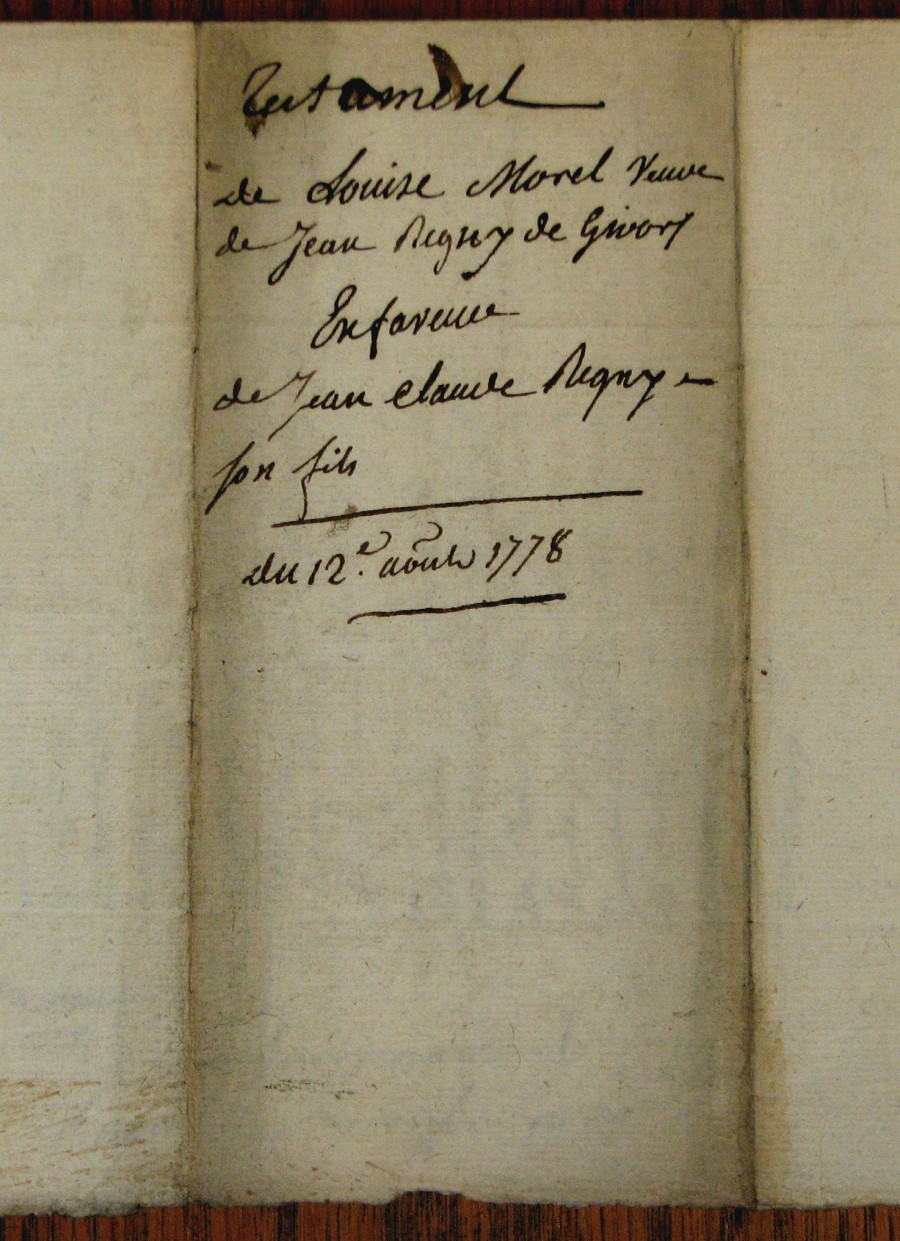 Testament
de Louise Morel Veuve
de Jean Regny de Givors
En faveur
de Jean Claude Regny
son fils
du 12e. août 1778